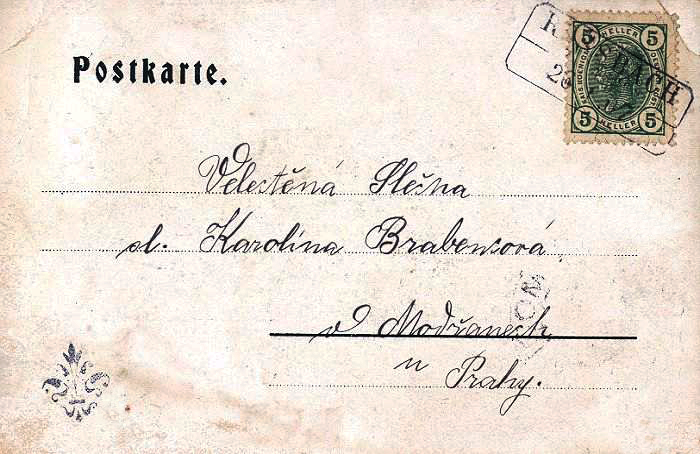 Postkarte.
5 HELLER 5
5 HELLER 5
Velectěná Slečna
sl. Karolina Brabencová
v Modřanech
u Prahy.